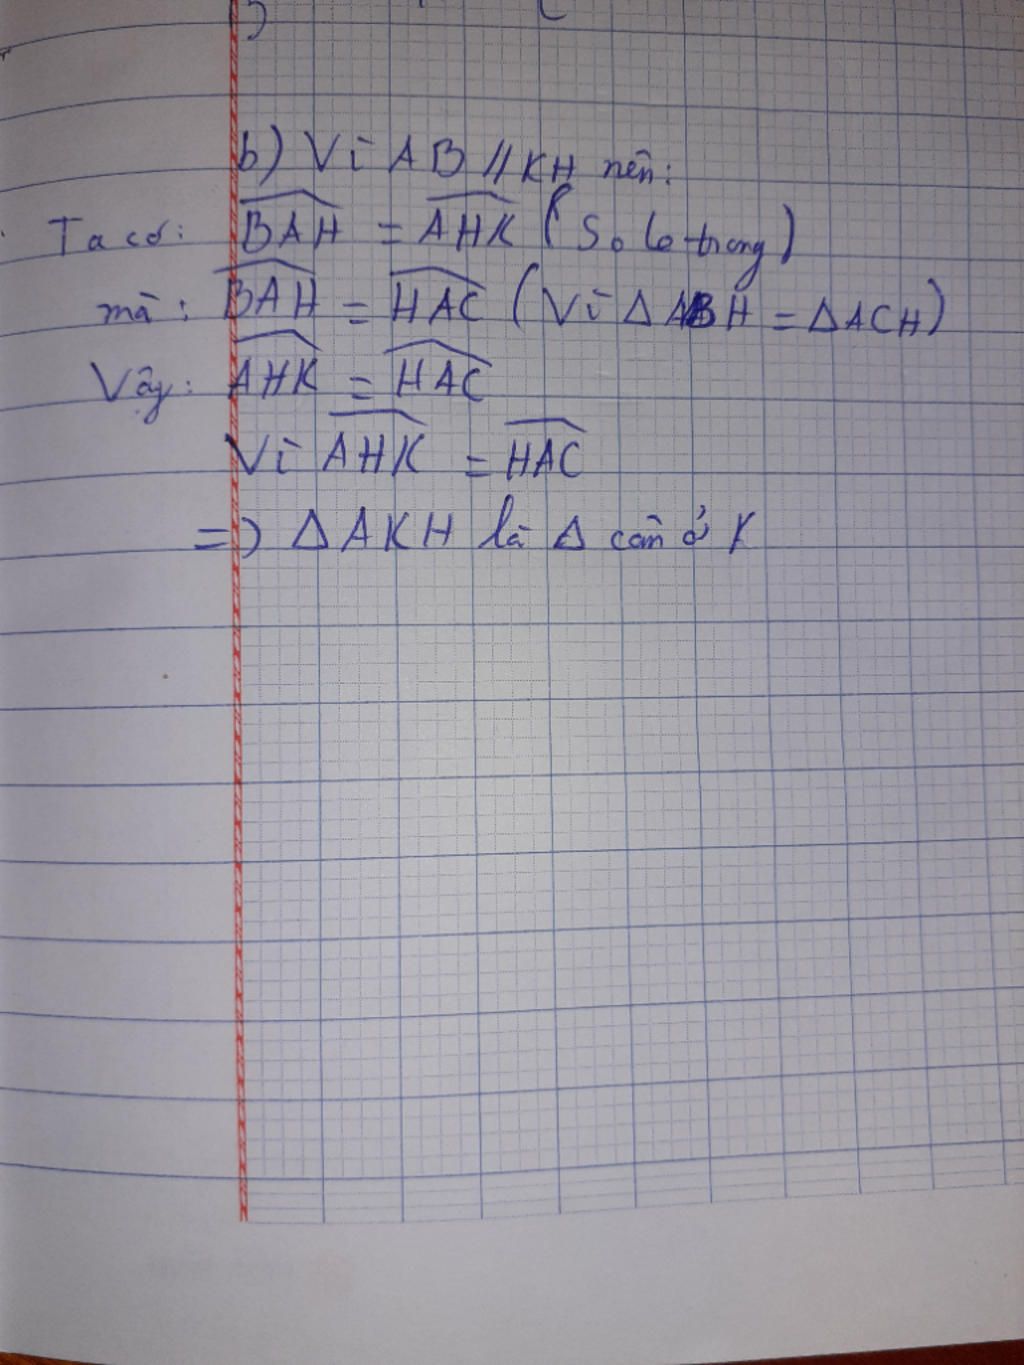 b) Vì AB // KH nên:
Ta có: BAH = AHK (So le trong)
mà: BAH = HAC (Vì Δ ABH = Δ ACH)
Vậy: AHK = HAC
Vì AHK = HAC
=> Δ AKH là Δ cân ở K